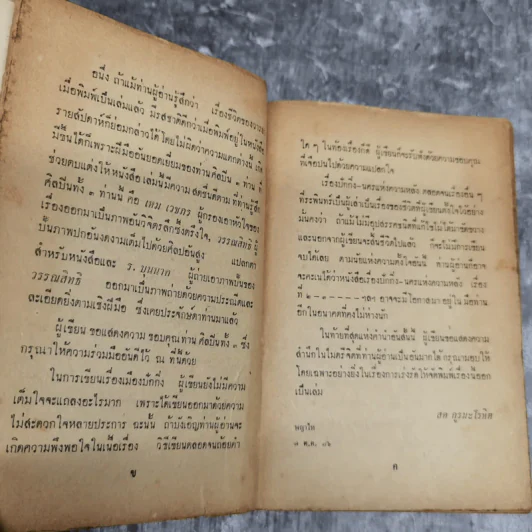 อนึ่ง ถ้าแม้ท่านผู้อ่านรู้สึกว่า เรื่องชีวิตของ
เมื่อพิมพ์เป็นเล่มแล้ว มีรสชาติดีกว่าเมื่อพิมพ์อยู่ในหนังสือ
รายสัปดาห์ก็ย่อมกล่าวได้โดยไม่ผิดว่าความแตกต่างนี้ เกิด
มีขึ้นได้ก็เพราะฝีมืออันยอดเยี่ยมของท่านศิลปิน ๓ ท่าน ที่
ช่วยตบแต่งให้หนังสือเล่มนี้มีความสดชื่นดีตามที่ท่านรู้สึก
ศิลปินทั้ง ๓ ท่านนี้ คือ เหม เวชกร ผู้กรองเอาหัวใจของ
เรื่องออกมาเป็นภาพอันวิจิตรลึกซึ้งตรึงใจ, วรรณสิทธิ์ ผู้
ปั้นภาพปกอันงดงามเต็มไปด้วยศิลปอันสูง แปลกตา
สำหรับหนังสือและ ร. บุนนาค ผู้ถ่ายเอาภาพปั้นของ
วรรณสิทธิ์ ออกมาเป็นภาพถ่ายด้วยความประณีตและ
ละเอียดยิ่งตามเชิงฝีมือ ซึ่งเคยประจักษ์ตาท่านมาแล้ว
ผู้เขียน ขอแสดงความ ขอบคุณ ท่าน ศิลปิน ทั้ง ๓ ซึ่ง
กรุณาให้ความร่วมมืออันดีไว้ ณ ที่นี้ด้วย
ในการเขียนเรื่องเมืองปักกิ่ง ผู้เขียนยังไม่มีความ
เต็มใจจะแถลงอะไรมาก เพราะได้เขียนออกมาด้วยความ
ไม่สะดวกใจหลายประการ ฉะนั้น ถ้าบังเอิญท่านผู้อ่านจะ
เกิดความพึงพอใจในเนื้อเรื่อง วิธีเขียนตลอดจนถ้อยคำ
ข
ใด ๆ ในท้องเรื่องก็ดี ผู้เขียนก็จะรับฟังด้วยความขอบคุณ
ที่เจือปนไปด้วยความแปลกใจ
เรื่องปักกิ่ง-นครแห่งความหลัง ตลอดจนเรื่องอื่น ๆ
ที่ระพินทร์เป็นผู้เล่าเป็นเรื่องของชีวิตที่ผู้เขียนตั้งใจไว้อย่าง
มั่นคงว่า ถ้าแม้ไม่มีอุปสรรค
และนอกจากผู้เขียนจะสิ้นชีวิตไปแล้ว ก็จะ
จบได้เลย ตามนัยแห่งความตั้งใจอันนี้ ท่านผู้อ่านก็อาจ
จะคะเนได้ว่าหนังสือเรื่องปักกิ่ง-นครแห่งความหลัง เรื่อง
ที่ ๒-๓-----ฯลฯ อาจจะมีโอกาสมาอยู่ใน มือท่าน
อีกในอนาคตที่คงไม่ห่างนัก
ในท้ายที่สุดแห่งคำนำอันสั้นนี้ ผู้เขียนขอแสดงความ
สำนึกในไมตรีจิตที่ท่านผู้อ่านเป็นอันมากได้ กรุณามอบให้
โดยเฉพาะอย่างยิ่งในเรื่องการเร่งรัดให้จัดพิมพ์เรื่องนี้ออก
เป็นเล่ม
สด กูรมะโรหิต
พญาไท
๗ ต.ค. ๘๖
ค